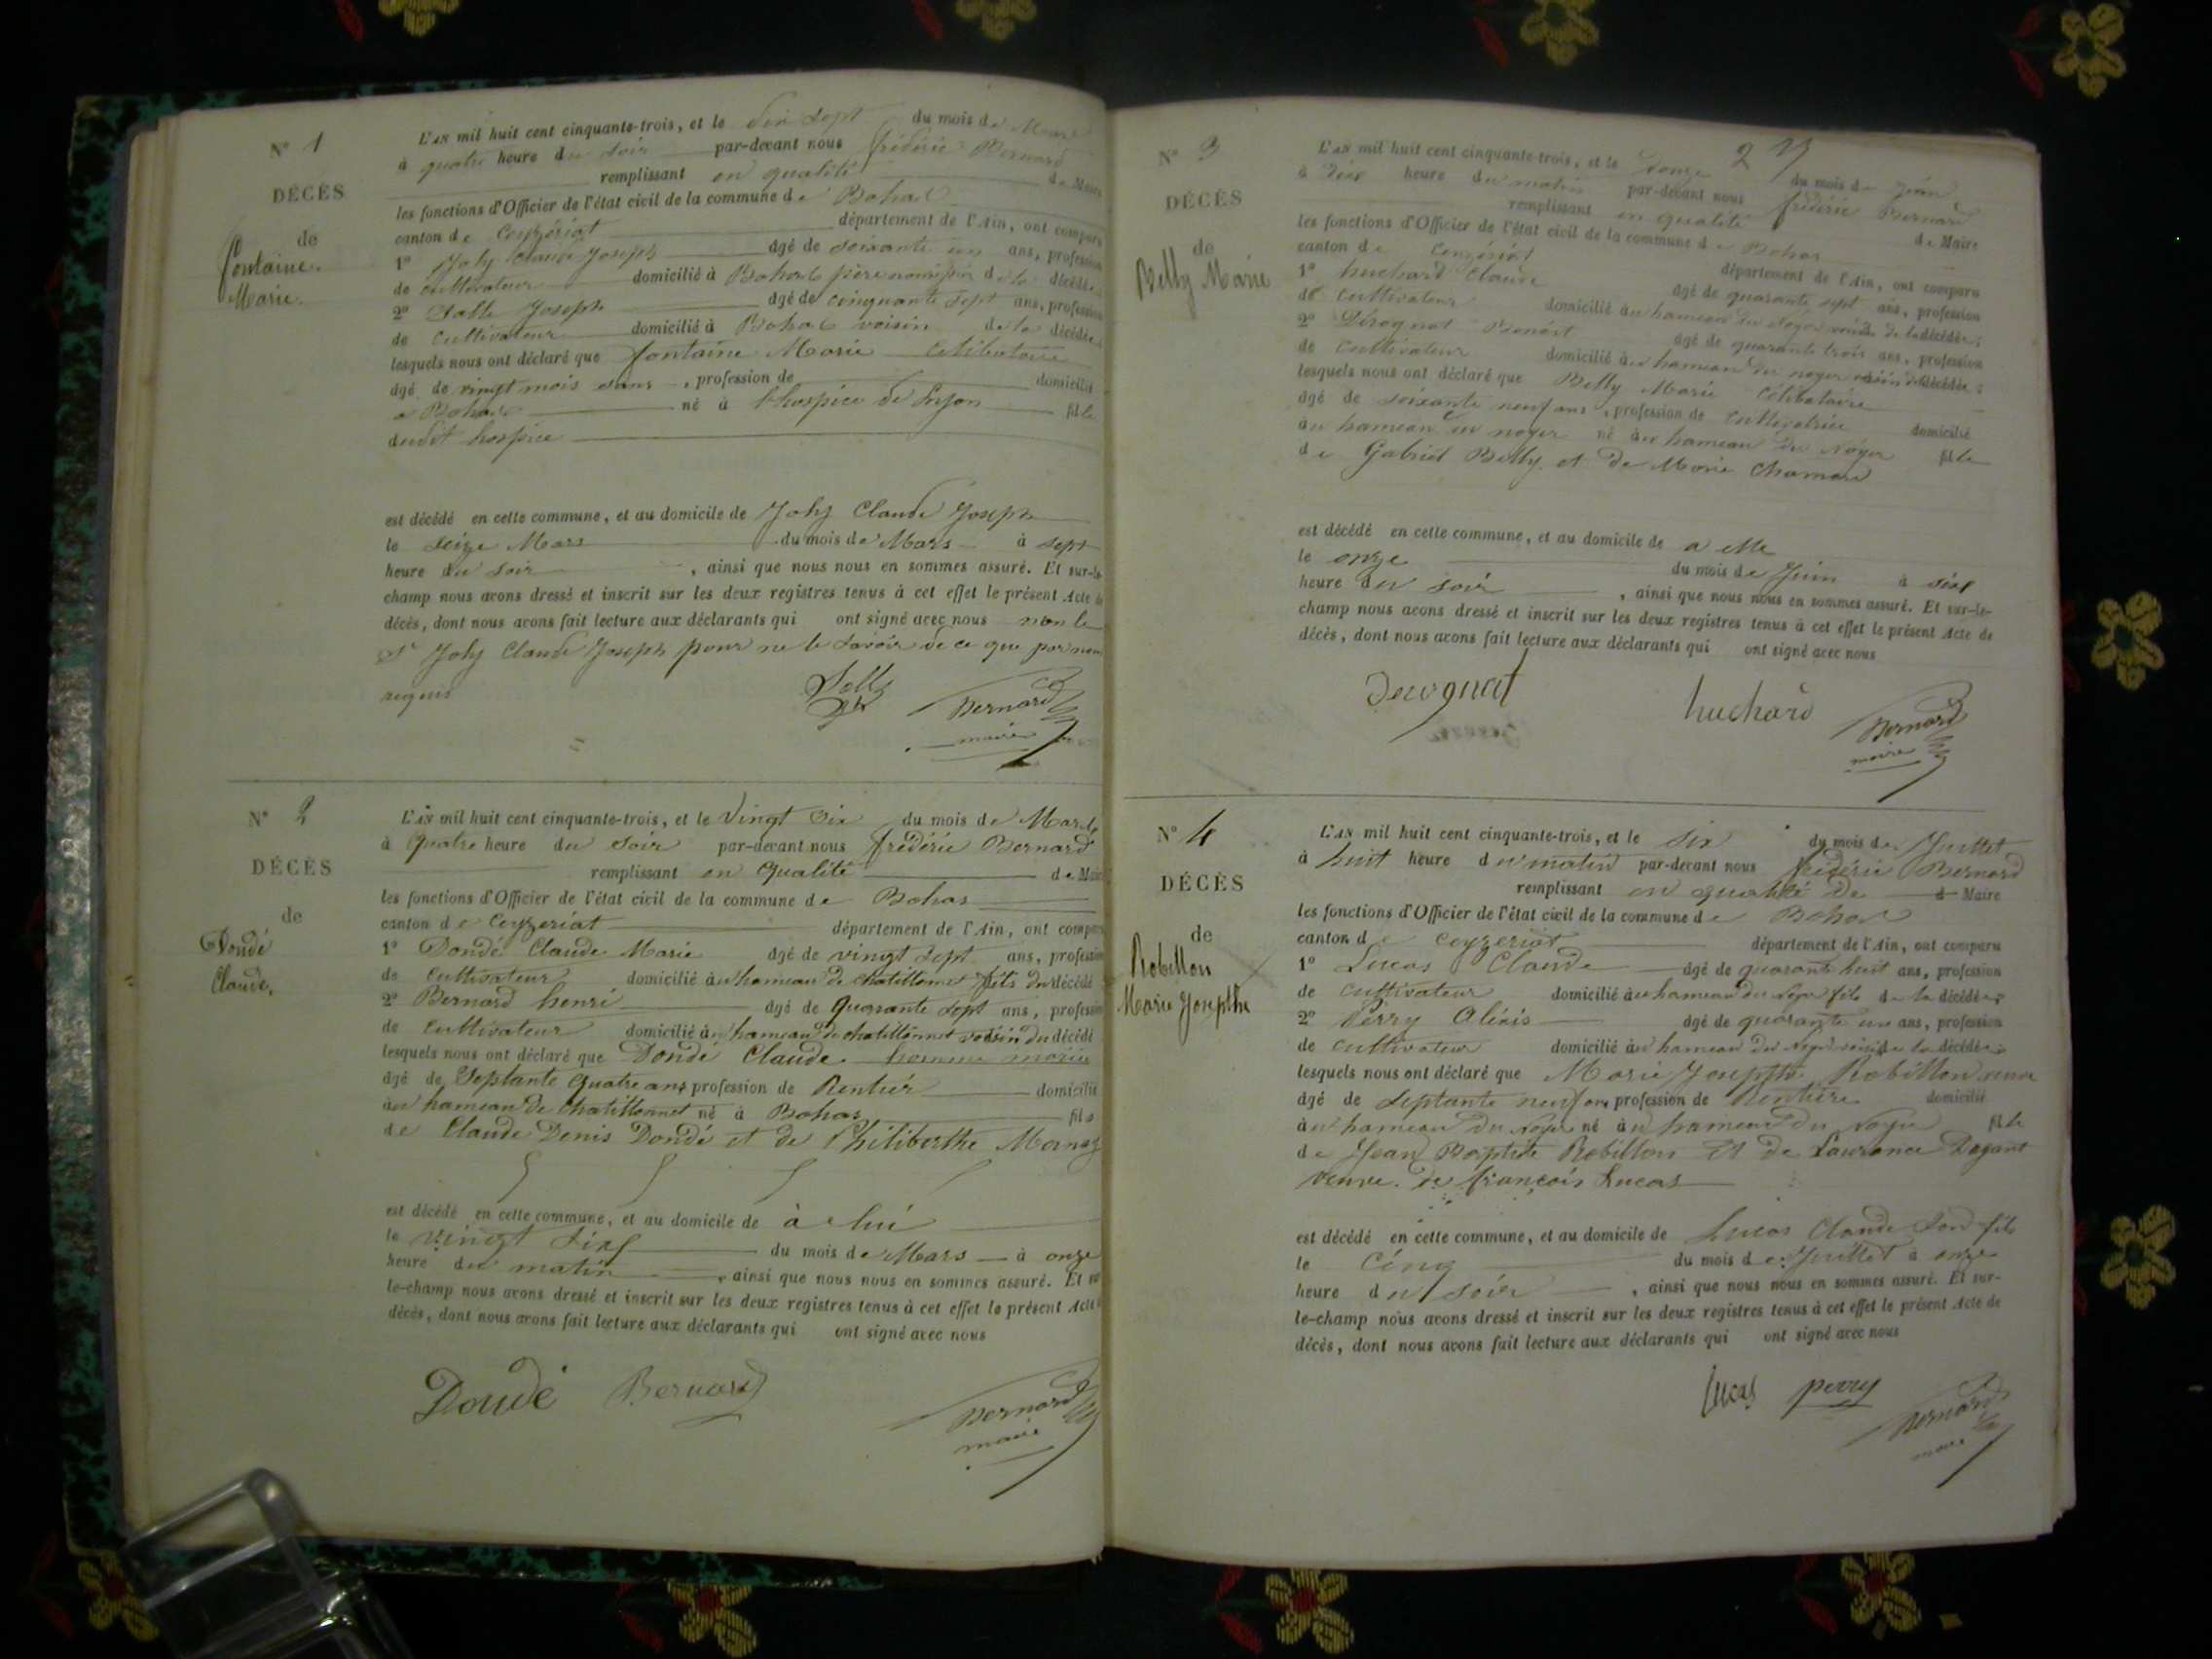 N° 1
DÉCÈS
de
fontaine
Marie.
L'AN mil huit cent cinquante-trois, et le dix sept du mois de Mars
à quatre heure du soir par-devant nous frédéric Bernard
remplissant en qualité de Maire
les fonctions d'Officier de l'état civil de la commune de Bohas
canton de Ceyzériat département de l'Ain, ont comparu
1° Joly Claude Joseph âgé de soixante un ans, profession
de cultivateur domicilié à Bohas père nourricier de la décédée
2° Salle Joseph âgé de cinquante sept ans, profession
de cultivateur domicilié à Bohas voisin de la décédée
lesquels nous ont déclaré que fontaine Marie célibataire
âgé de vingt mois sans profession de domicilié
à Bohas né à l'hospice de Lyon fille
dudit hospice
est décédé en cette commune, et au domicile de Joly Claude Joseph
le seize Mars du mois de Mars à sept
heure du soir, ainsi que nous nous en sommes assuré. Et sur-le-
champ nous avons dressé et inscrit sur les deux registres tenus à cet effet le présent Acte de
décès, dont nous avons fait lecture aux déclarants qui ont signé avec nous non le
Sr Joly Claude Joseph pour ne le savoir de ce que par nous
requis
Bernard
maire
N° 2
DÉCÈS
de
Dondé
Claude,
L'AN mil huit cent cinquante-trois, et le vingt six du mois de Mars
à quatre heure du soir par-devant nous frédéric Bernard
remplissant en qualité de Maire
les fonctions d'Officier de l'état civil de la commune de Bohas
canton de Ceyzeriat département de l'Ain, ont comparu
1° Dondé Claude Marie âgé de vingt sept ans, profession
de cultivateur domicilié au hameau de chatillonnet fils du décédé
2° Bernard henri âgé de quarante sept ans, profession
de cultivateur domicilié au hameau de chatillonnet voisin du décédé
lesquels nous ont déclaré que Dondé Claude homme marié
âgé de septante quatre ans profession de Rentier domicilié
au hameau de Chatillonnet né à Bohas fils
de Claude Denis Dondé et de Philiberthe Mornay
est décédé en cette commune, et au domicile de à lui
le vingt six du mois de Mars à onze
heure du matin, ainsi que nous nous en sommes assuré. Et sur
le-champ nous avons dressé et inscrit sur les deux registres tenus à cet effet le présent Acte
décès, dont nous avons fait lecture aux déclarants qui ont signé avec nous
Dondé Bernard
Bernard
maire
N° 3
DÉCÈS
de
Belly Marie
2
L'AN mil huit cent cinquante-trois, et le Douze du mois de juin
à dix heure du matin par-devant nous frédéric Bernard
remplissant en qualité de Maire
les fonctions d'Officier de l'état civil de la commune de Bohas
canton de Ceyzériat département de l'Ain, ont comparu
1° huchard Claude âgé de quarante sept ans, profession
de cultivateur domicilié au hameau du Noyer voisin de la décédée
2° Dérognat Benoit âgé de quarante trois ans, profession
de cultivateur domicilié au hameau du noyer voisin de la décédée
lesquels nous ont déclaré que Belly Marie Célibataire
âgé de soixante neuf ans, profession de cultivatrice domicilié
au hameau du noyer né au hameau du Noyer fille
de Gabriel Belly et de Marie
est décédé en cette commune, et au domicile de a elle
le onze du mois de Juin à six
heure du soir, ainsi que nous nous en sommes assuré. Et sur-le-
champ nous avons dressé et inscrit sur les deux registres tenus à cet effet le présent Acte de
décès, dont nous avons fait lecture aux déclarants qui ont signé avec nous
Derognat huchard Bernard
maire
N° 4
DÉCÈS
de
Robillon
Marie Josepthe
L'AN mil huit cent cinquante-trois, et le six du mois de Juillet
à huit heure du matin par-devant nous frédéric Bernard
remplissant en qualité de Maire
les fonctions d'Officier de l'état civil de la commune de Bohas
canton de Ceyzeriat département de l'Ain, ont comparu
1° Lucas Claude âgé de quarante huit ans, profession
de cultivateur domicilié au hameau du Noyer fils de la décédée
2° Perry Aléxis âgé de quarante un ans, profession
de cultivateur domicilié au hameau du Noyer voisin de la décédée
lesquels nous ont déclaré que Marie Josepthe Robillon veuve
âgé de septante neuf ans profession de Rentière domicilié
au hameau du Noyer né au hameau du Noyer fille
de Jean Baptiste Robillon et de Laurence
veuve de françois Lucas
est décédé en cette commune, et au domicile de Lucas Claude son fils
le cinq du mois de Juillet à onze
heure du soir, ainsi que nous nous en sommes assuré. Et sur-
le-champ nous avons dressé et inscrit sur les deux registres tenus à cet effet le présent Acte de
décès, dont nous avons fait lecture aux déclarants qui ont signé avec nous
Lucas perry Bernard
maire